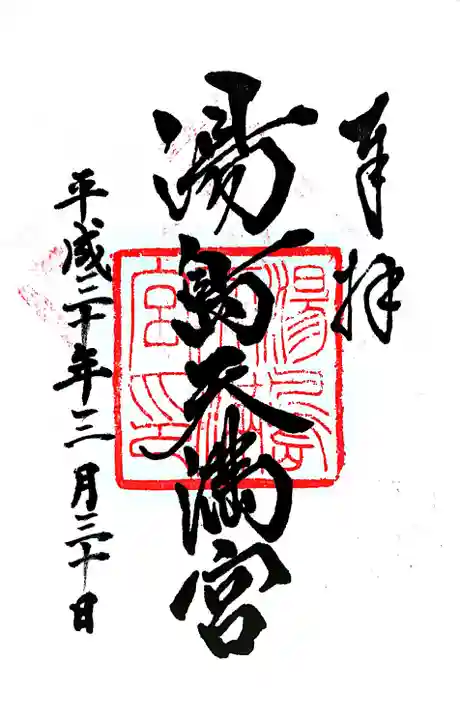 奉拝
湯島天満宮
平成三十年三月三十日
湯島
天満
宮印